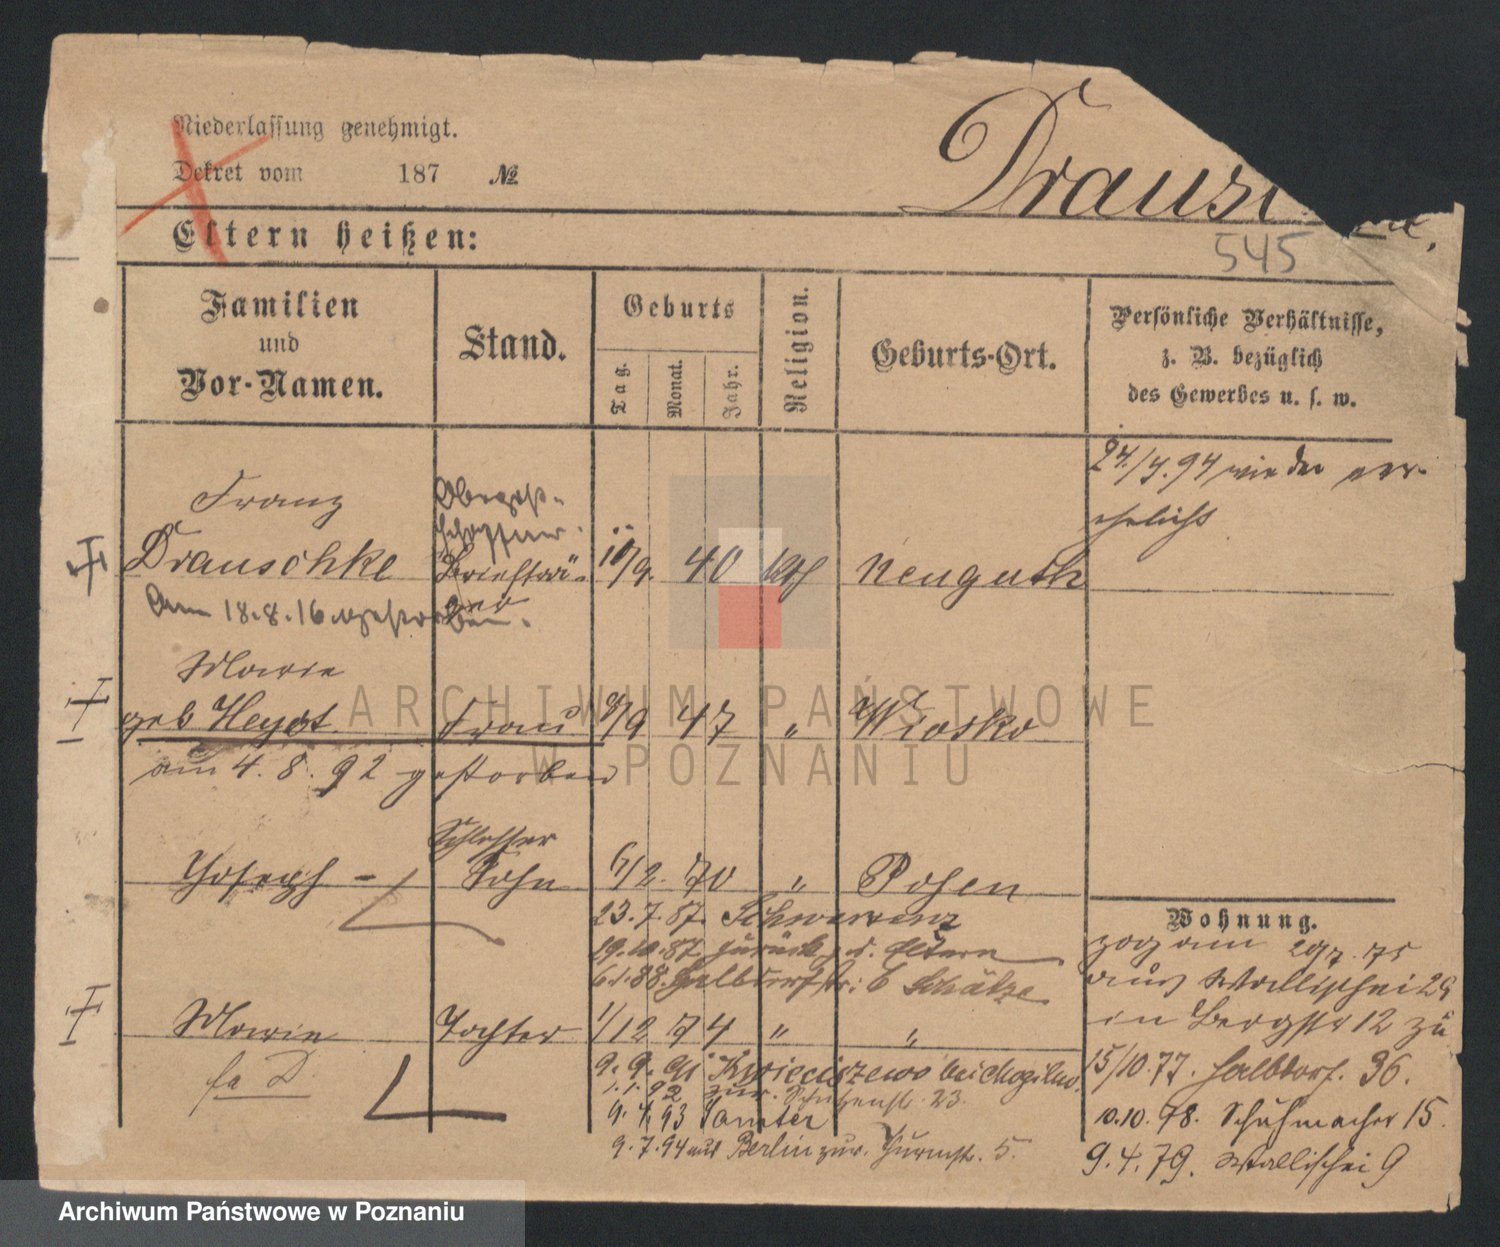 Niederlassung genehmigt.
Dekret vom 187 №
Drausc
Eltern heißen:
545
Familien und Vor-Namen.
Stand.
Geburts
Tag.
Monat.
Jahr.
Religion.
Geburts-Ort.
Persönliche Verhältnisse,
z. B. bezüglich
des Gewerbes u. s. w.
24/7.94 wieder ver-
ehelicht
Franz
Oberpost-
schaffner.
Drauschke
Briefträ-
ger
10/9. 40 kth Neuguth
Am 18.8.16 gestorben.
Marie
geb Heydt. Frau 8/9 47 " Wiosko
am 4.8.92 gestorben
Schlosser
Joseph - Sohn 6/2. 70 " Posen
23.7.87. Schwersenz
19.10.87 zurück z. d. Eltern
6.1.88. Halbdorfstr: b Schätze
Marie Tochter 1/12 74 " "
9.9.91 Kwieciszewo bei Mogilno.
1.1.92 zur. Schützenstr. 23.
9.4.93 Samter
9.7.94 aus Berlin zur. Thurmstr. 5.
Wohnung.
zog am 29/7.75
aus Wallischei 29
in Bergstr 12 zu
15/10.77. Halbdorf. 36.
10.10.78. Schuhmacher 15.
9.4.79. Wallischei 9
ARCHIWUM PAŃSTWOWE
W POZNANIU
Archiwum Państwowe w Poznaniu